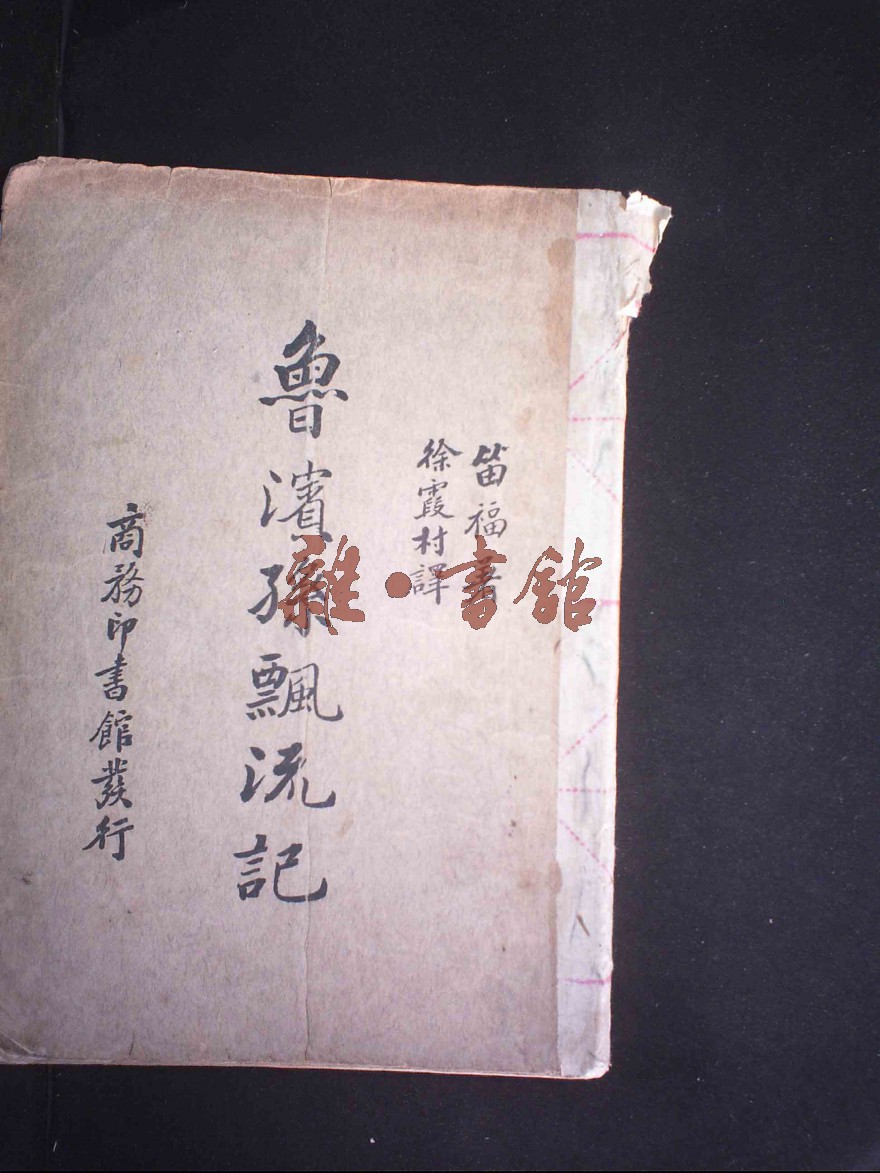 笛福著
徐霞村譯
魯濱孫飄流記
商務印書館發行
雜·書館